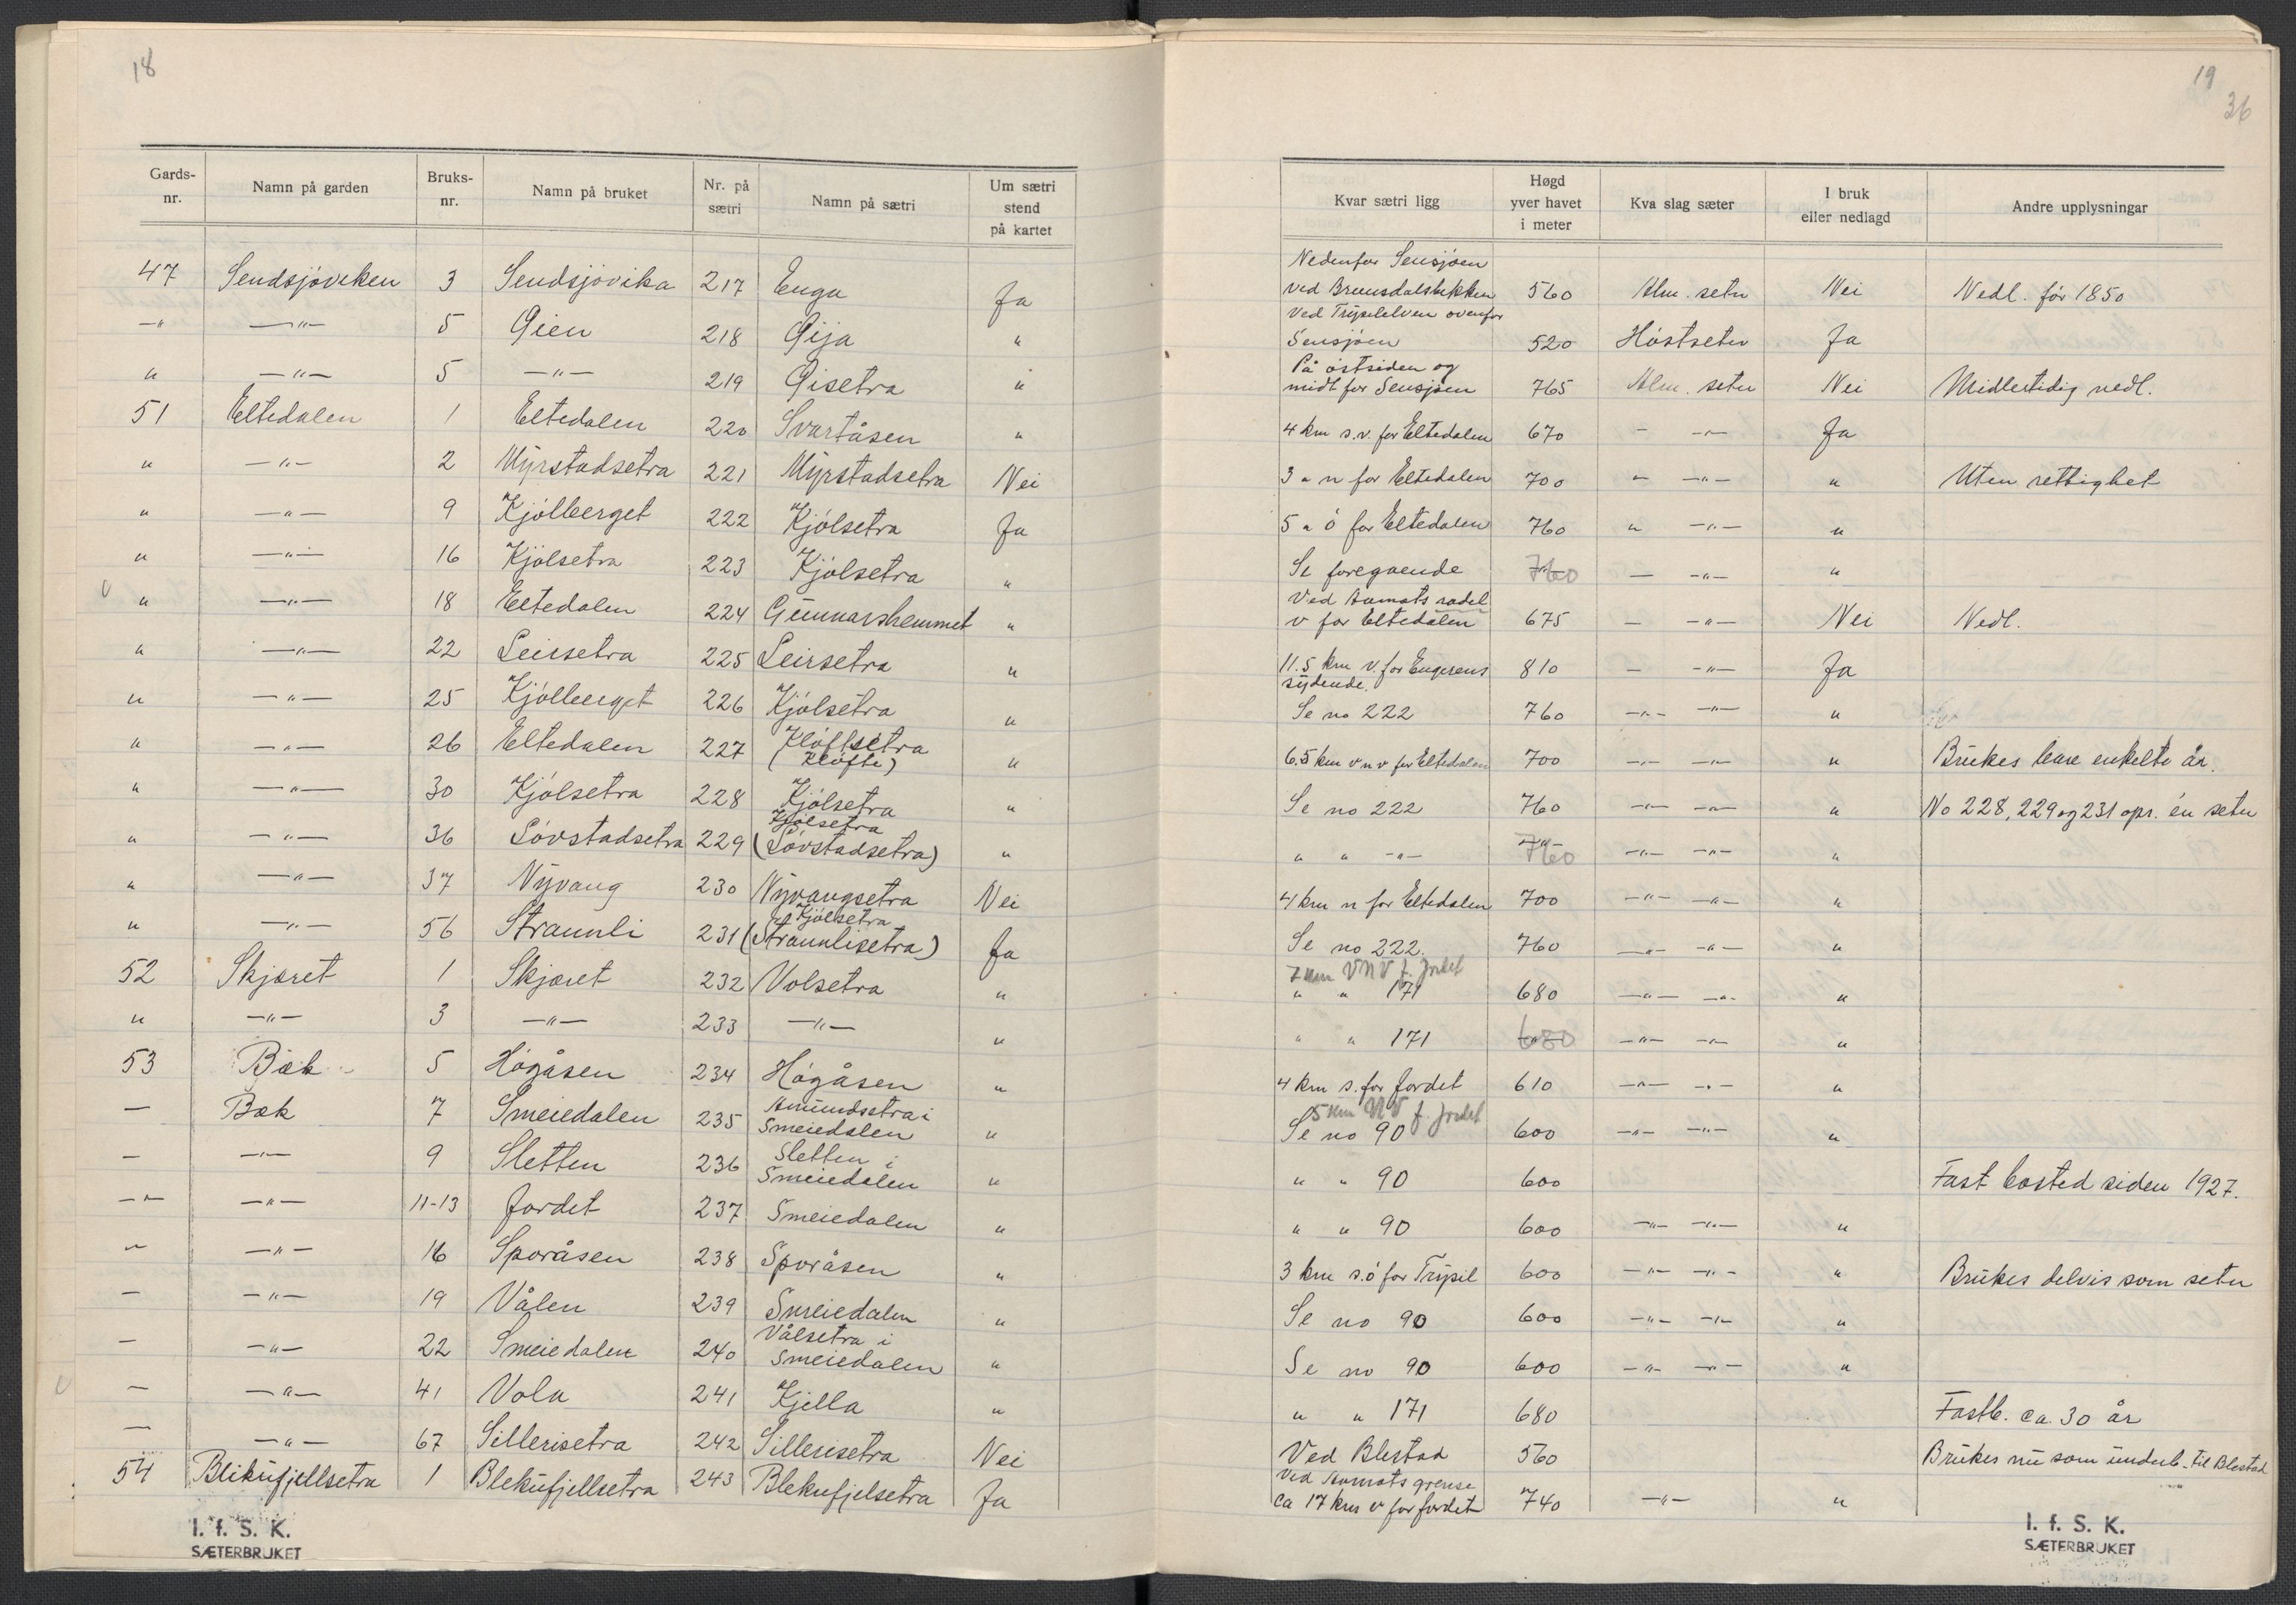 18
Gards-nr. | Namn på garden | Bruks-nr. | Namn på bruket | Nr. på sætri | Namn på sætri | Um sætri stend på kartet
47 | Sendsjøviken | 3 | Sendsjøvika | 217 | Enga | Ja
-"- | -"- | 5 | Gien | 218 | Gija | "
" | -"- | 5 | -"- | 219 | Gisetra | "
51 | Eltedalen | 1 | Eltedalen | 220 | Svartåsen | "
" | -"- | 2 | Myrstadsetra | 221 | Myrstadsetra | Nei
" | -"- | 9 | Kjølberget | 222 | Kjølsetra | Ja
" | -"- | 16 | Kjølsetra | 223 | Kjølsetra | "
" | -"- | 18 | Eltedalen | 224 | Gunnarshemmet | "
" | -"- | 22 | Leirsetra | 225 | Leirsetra | "
" | -"- | 25 | Kjølberget | 226 | Kjølsetra | "
" | -"- | 26 | Eltedalen | 227 | Kløftsetra (Kløfte) | "
" | -"- | 30 | Kjølsetra | 228 | Kjølsetra | "
" | -"- | 36 | Løvstadsetra | 229 | Kjølsetra (Løvstadsetra) | "
" | -"- | 37 | Nyvang | 230 | Nyvangsetra | Nei
" | -"- | 56 | Straunli | 231 | Kjølsetra (Straunlisetra) | Ja
52 | Skjæret | 1 | Skjæret | 232 | Volsetra | "
" | -"- | 3 | -"- | 233 | -"- | "
53 | Bæk | 5 | Høgåsen | 234 | Høgåsen | "
- | Bæk | 7 | Smeiedalen | 235 | Amundsetra i Smeiedalen | "
- | -"- | 9 | Sletten | 236 | Sletten i Smeiedalen | "
-"- | -"- | 11-13 | Jordet | 237 | Smeiedalen | "
-"- | -"- | 16 | Sporåsen | 238 | Sporåsen | "
- | -"- | 19 | Vålen | 239 | Smeiedalen | "
- | -"- | 22 | Smeiedalen | 240 | Vålsetra i Smeiedalen | "
- | -"- | 41 | Vola | 241 | Kjella | "
- | -"- | 67 | Sillerisetra | 242 | Sillerisetra | Nei
54 | Blikufjellsetra | 1 | Blekufjellsetra | 243 | Blekufjelsetra | Ja
I. f. S. K.
SÆTERBRUKET
19
36
Kvar sætri ligg | Høgd yver havet i meter | Kva slag sæter | I bruk eller nedlagd | Andre upplysningar
Nedenfor Sensjøen ved Brunsdalsbekken | 560 | Alm. seter | Nei | Nedl. før 1850
Ved Trysilelven ovenfor Sensjøen | 520 | Høstseter | Ja
På østsiden og midt for Sensjøen | 765 | Alm. seter | Nei | Midlertidig nedl.
4 km s.v. for Eltedalen | 670 | - -"- | Ja
3 " n for Eltedalen | 700 | - -"- | " | Uten rettighet
5 " ø for Eltedalen | 760 | " -"- | "
Se foregaende | 760 | - -"- | "
Ved Aamots radel v for Eltedalen | 675 | - -"- | Nei | Nedl.
11.5 km v. for Engerens sydende. | 810 | - -"- | Ja
Se no 222 | 760 | -"- -"- | "
6.5 km v n v for Eltedalen | 700 | -"- -"- | " | Brukes bare enkelte år.
Se no 222 | 760 | -"- -"- | " | No 228, 229 og 231 opr. én seter
" " -"- | 760 | -"- -"- | "
4 km n for Eltedalen | 700 | -"- -"- | "
Se no 222. | 760 | -"- -"- | "
7 km VNV f. Jordet
" " 171 | 680 | -"- -"- | "
" " 171 | 680 | -"- -"- | "
4 km s. for Jordet | 610 | -"- -"- | "
5 km NV f. Jordet
Se no 90 | 600 | -"- -"- | "
" " 90 | 600 | Fast bosted siden 1927.
" " 90 | 600 | -"- -"- | "
3 km s.ø for Trysil | 600 | -"- -"- | " | Brukes delvis som seter
Se no 90 | 600 | -"- -"- | "
Se no 90 | 600 | -"- -"- | "
" " 171 | 680 | Fastb. ca. 30 år
Ved Blestad | 560 | Brukes nu som underb. til Blestad
Ved Aamots grense ca 17 km v for Jordet | 740 | -"- | "
I. f. S. K.
SÆTERBRUKET